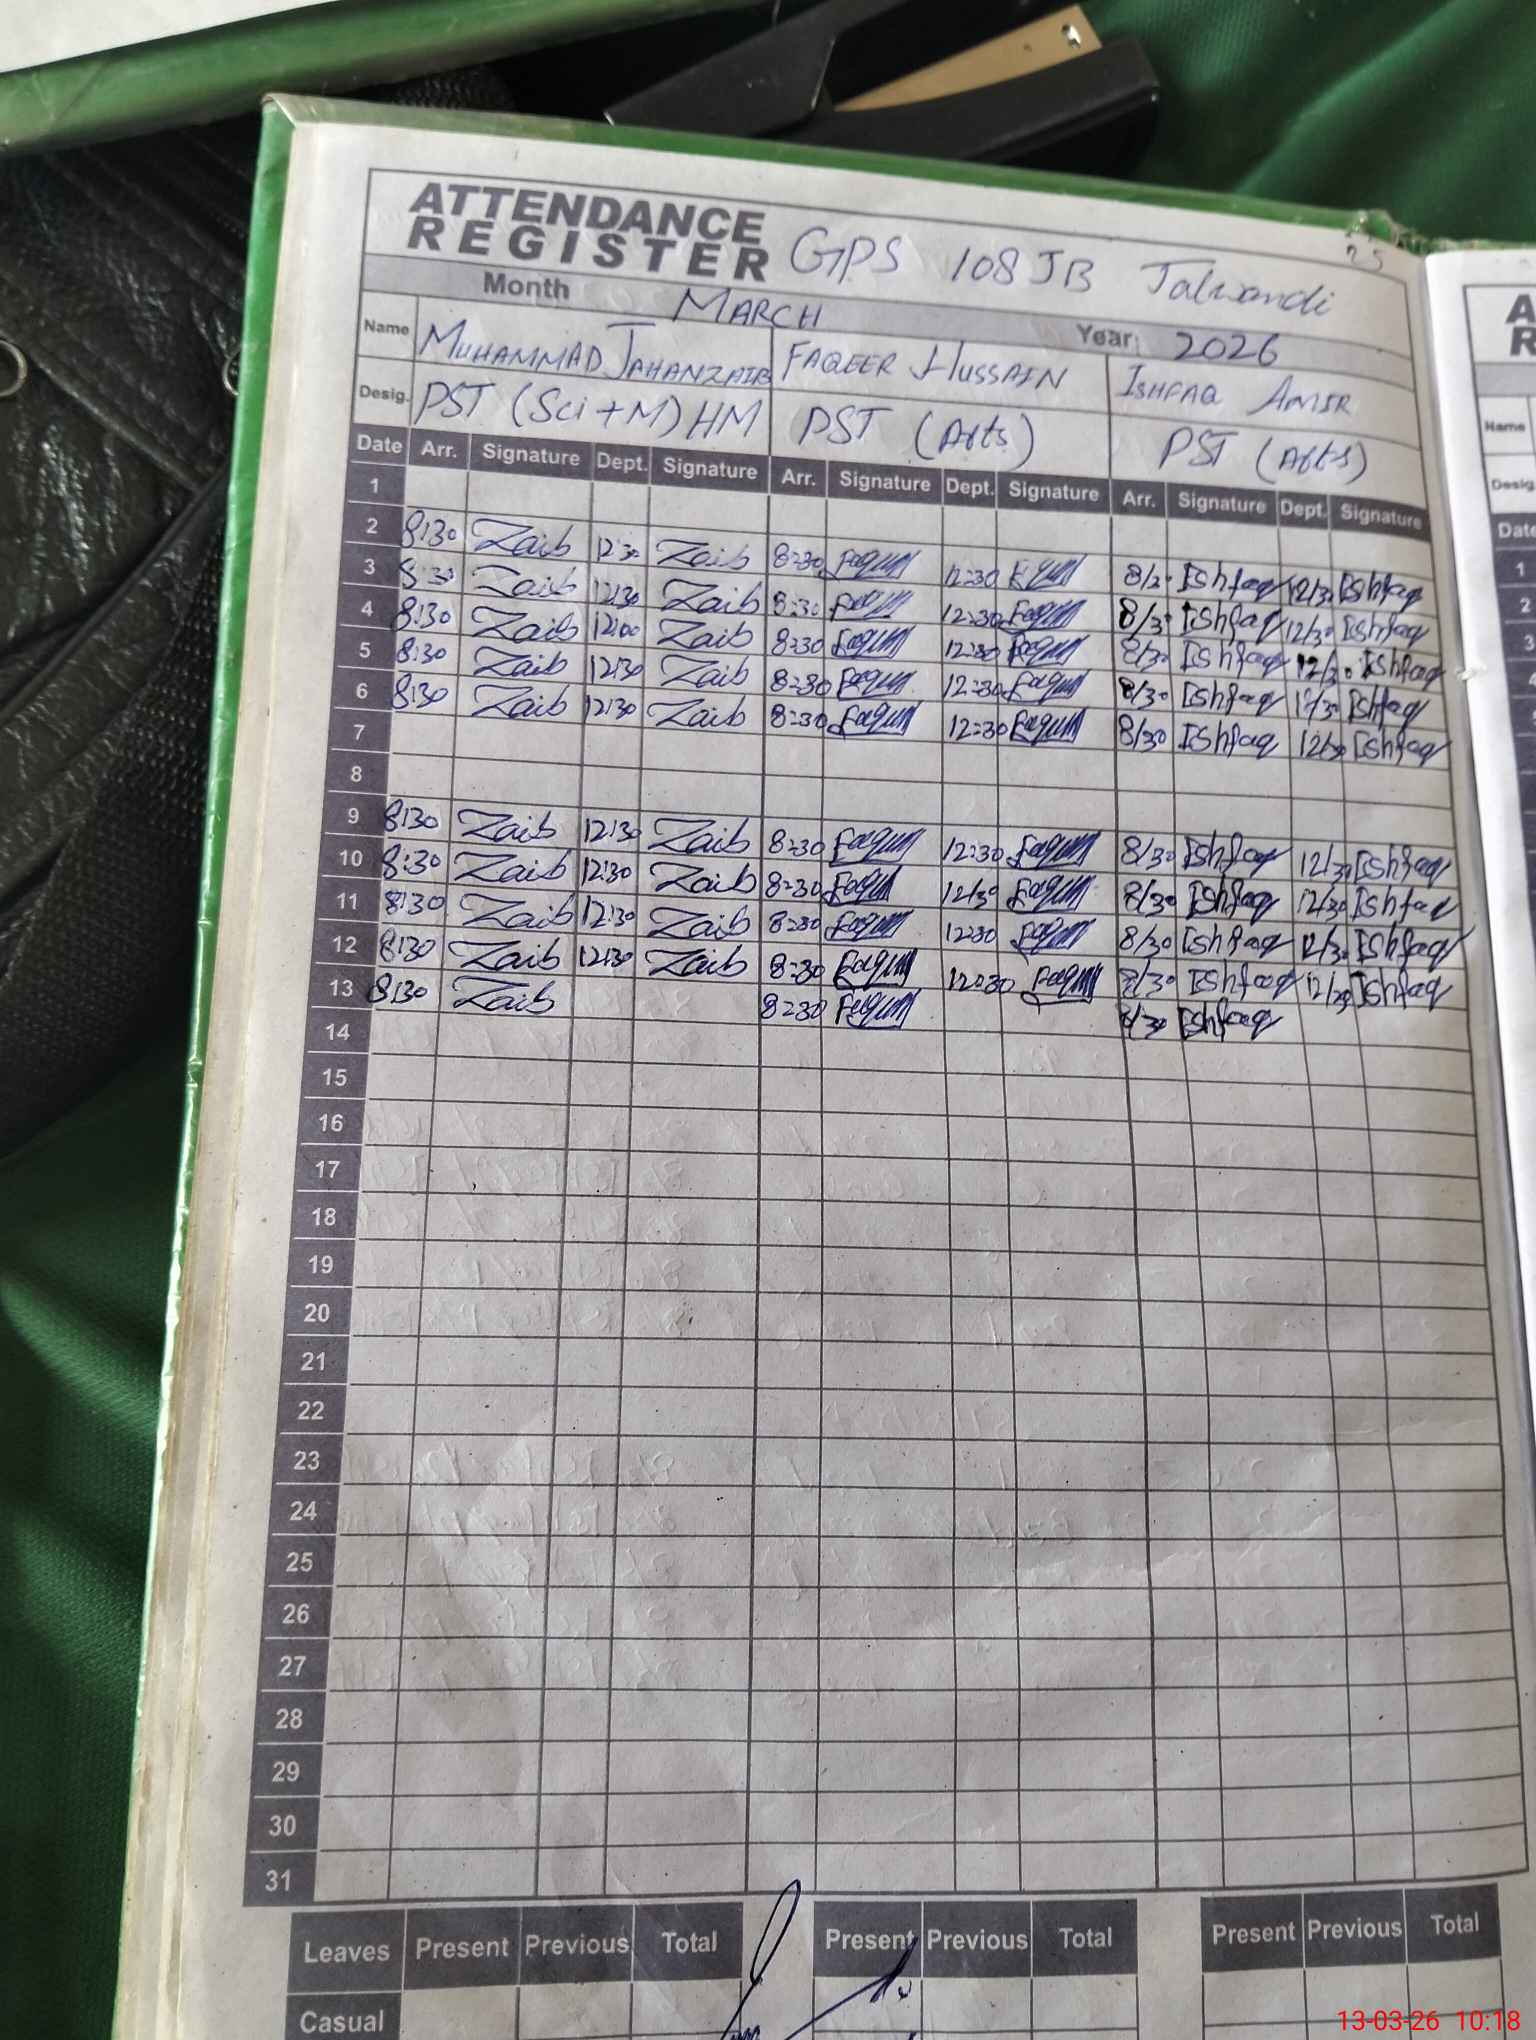 ATTENDANCE
REGISTER GPS 108 JB Talwandi
Month MARCH Year: 2026
Name MUHAMMAD JAHANZAIB FAQEER HUSSAIN ISHFAQ AMIR
Desig. PST (Sci + M) HM PST (Arts) PST (Arts)
Date Arr. Signature Dept. Signature Arr. Signature Dept. Signature Arr. Signature Dept. Signature
1
2 8:30 Zaib 12:30 Zaib 8:30 Faqeer 12:30 Ishfaq Ishfaq
3 8:30 Zaib 12:30 Zaib 8:30 Faqeer 12:30 Faqeer 8/30 Ishfaq 12/30 Ishfaq
4 8:30 Zaib 12:00 Zaib 8:30 Faqeer 12:30 Faqeer 8/30 Ishfaq 12/30 Ishfaq
5 8:30 Zaib 12:30 Zaib 8:30 Faqeer 12:30 Faqeer 8/30 Ishfaq Ishfaq
6 8:30 Zaib 12:30 Zaib 8:30 Faqeer 12:30 Faqeer 8/30 Ishfaq 12/30 Ishfaq
7
8
9 8:30 Zaib 12:30 Zaib 8:30 Faqeer 12:30 Faqeer 8/30 Ishfaq 12/30 Ishfaq
10 8:30 Zaib 12:30 Zaib 8:30 Faqeer 12/30 Faqeer 8/30 Ishfaq 12/30 Ishfaq
11 8:30 Zaib 12:30 Zaib 8:30 Faqeer 12:30 Faqeer 8/30 Ishfaq 12/30 Ishfaq
12 8:30 Zaib 12:30 Zaib 8:30 Faqeer 12:30 Faqeer 8/30 Ishfaq 12/30 Ishfaq
13 8:30 Zaib 8:30 Faqeer 8/30 Ishfaq
14
15
16
17
18
19
20
21
22
23
24
25
26
27
28
29
30
31
Leaves Present Previous Total Present Previous Total Present Previous Total
Casual
A
R
Name
Desig
Date
1
2
3
4
13-03-26 10:18